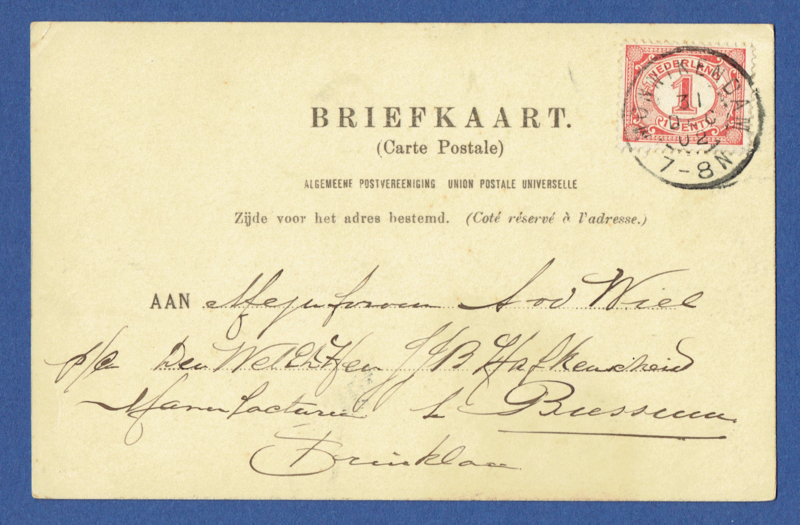 BRIEFKAART.
(Carte Postale)
ALGEMEENE POSTVEREENIGING UNION POSTALE UNIVERSELLE
Zijde voor het adres bestemd. (Coté réservé à l'adresse.)
NEDERLAND
1
CENT
MONNIKENDAM
31
DEC
02
7-8N
AAN Mejufvrouw A v d Wiel
p/a Den WelEdHeer J J B Hafkenscheid
Manufacturen te Bussum
Brinklaan